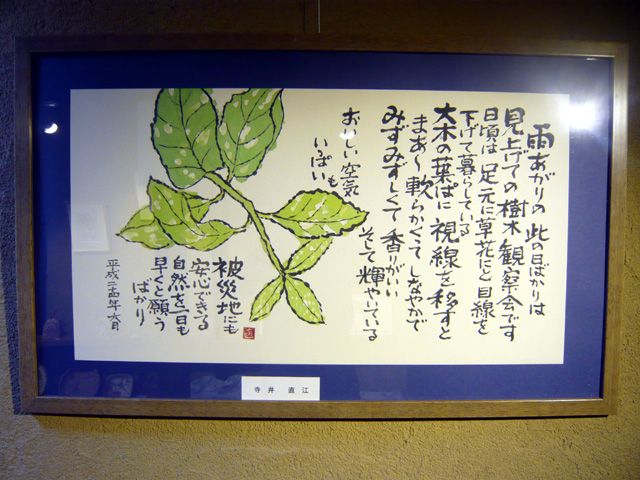 雨あがりの此の日ばかりは
見上げての樹木観察会です
日頃は足元に草花にと目線を
下げて暮らしている
大木の葉ばに視線を移すと
まあ〜軟らかくってしなやかで
みずみずしくて香りがいい
そして輝やいている
おいしい空気も
いっぱい
被災地にも
安心できる
自然を一日も
早くと願う
ばかり
平成二十四年六月
寺井 直江